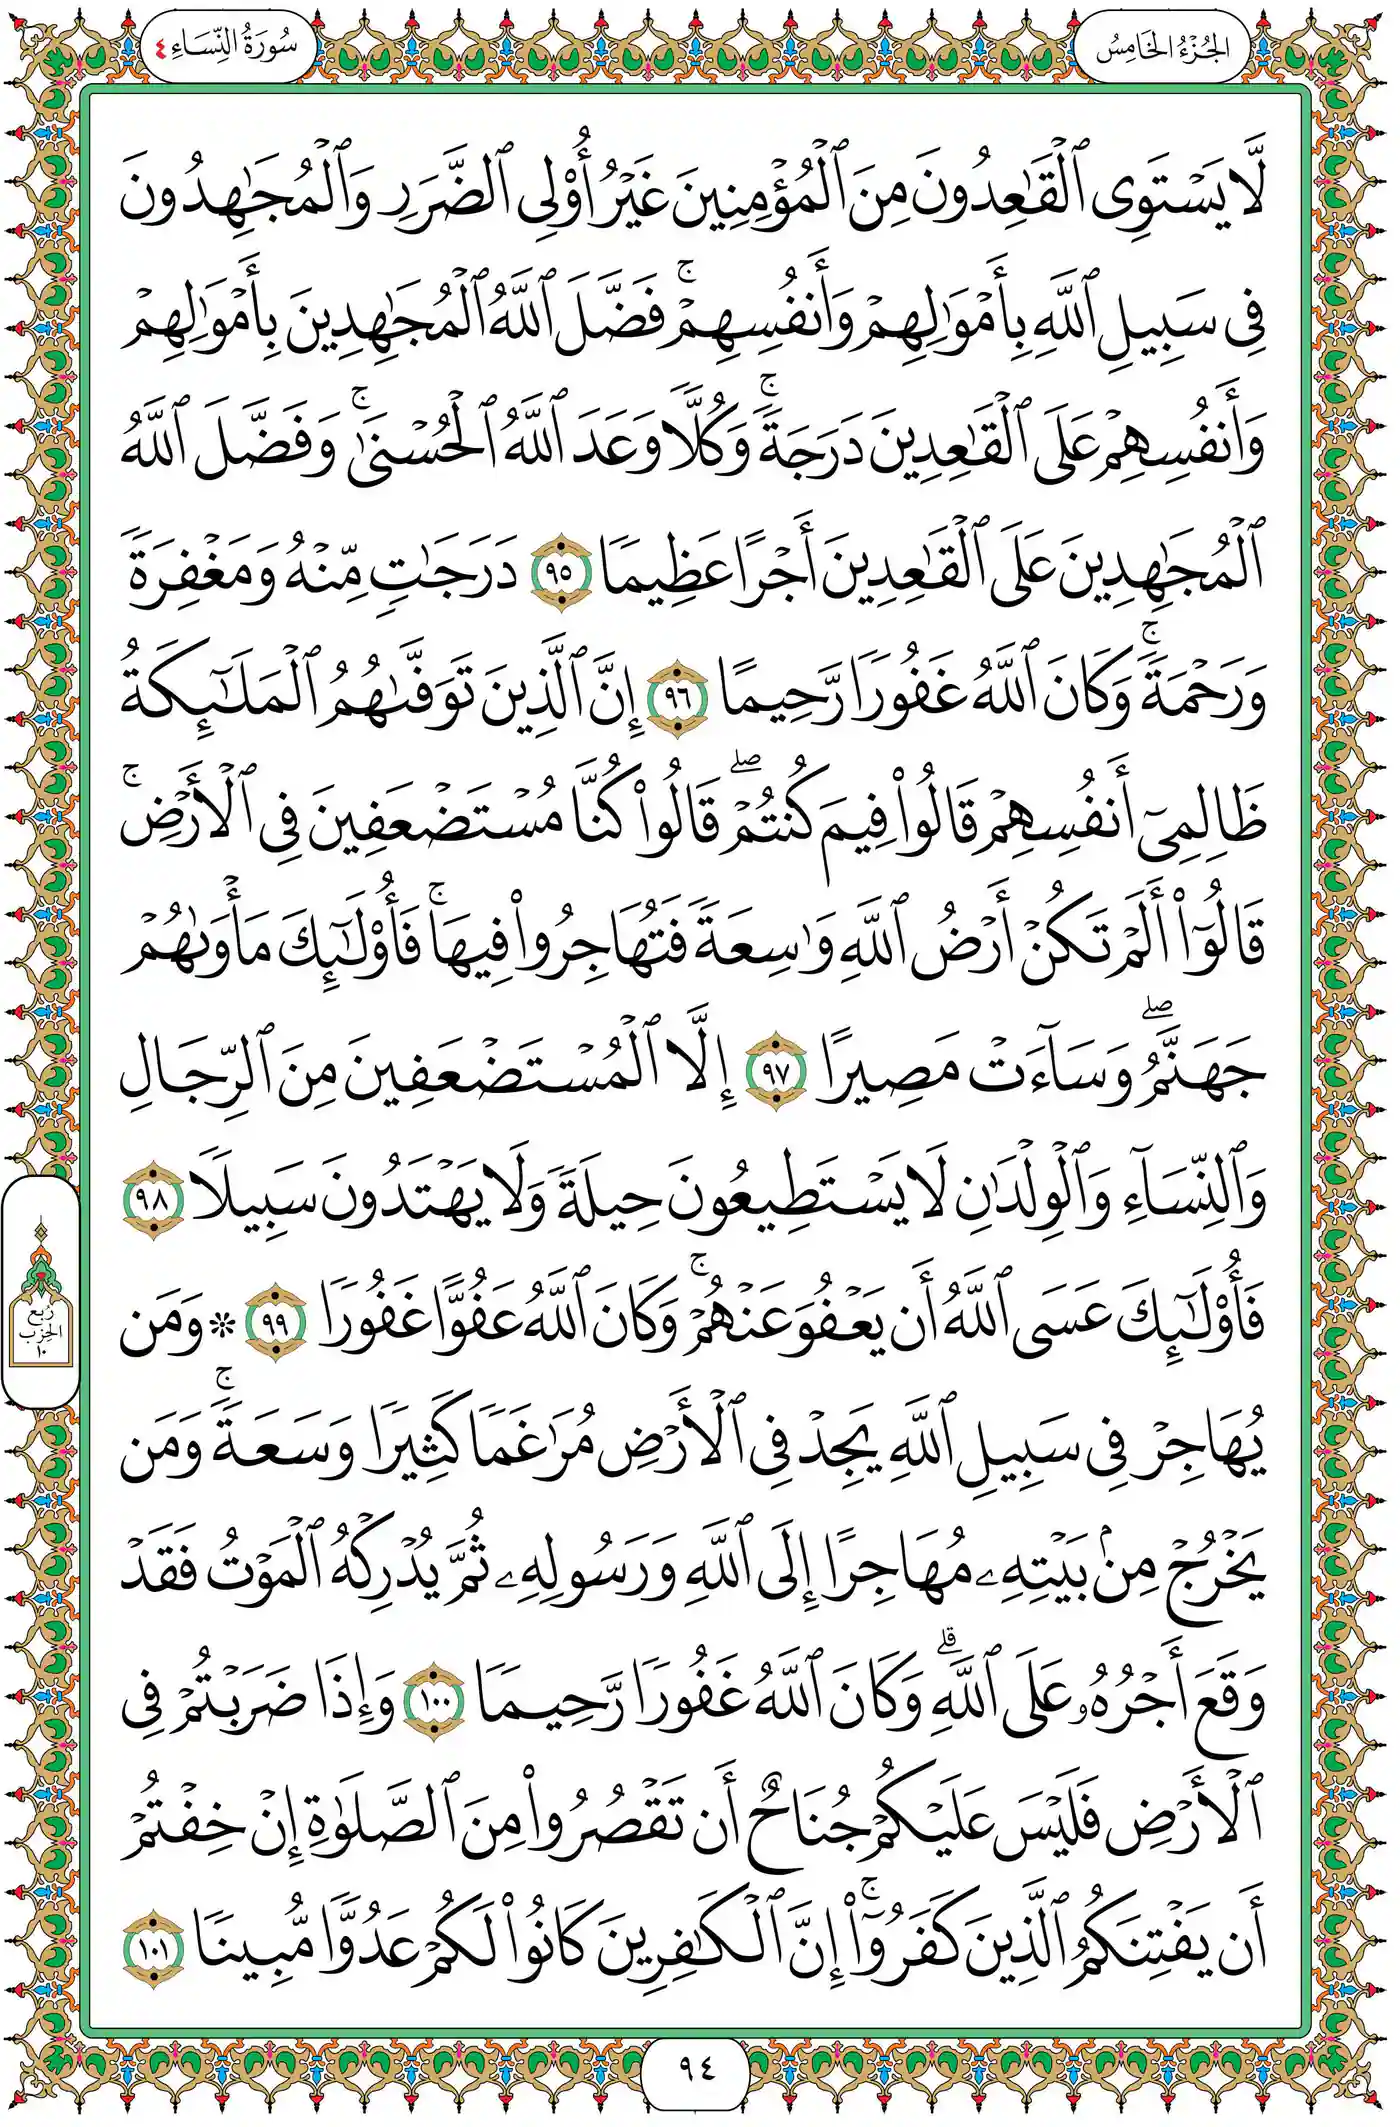 الجُزْءُ الخَامِسُ
سُورَةُ النِّسَاءِ ٤
لَّا يَسْتَوِى ٱلْقَٰعِدُونَ مِنَ ٱلْمُؤْمِنِينَ غَيْرُ أُو۟لِى ٱلضَّرَرِ وَٱلْمُجَٰهِدُونَ
فِى سَبِيلِ ٱللَّهِ بِأَمْوَٰلِهِمْ وَأَنفُسِهِمْ ۚ فَضَّلَ ٱللَّهُ ٱلْمُجَٰهِدِينَ بِأَمْوَٰلِهِمْ
وَأَنفُسِهِمْ عَلَى ٱلْقَٰعِدِينَ دَرَجَةً ۚ وَكُلًّا وَعَدَ ٱللَّهُ ٱلْحُسْنَىٰ ۚ وَفَضَّلَ ٱللَّهُ
ٱلْمُجَٰهِدِينَ عَلَى ٱلْقَٰعِدِينَ أَجْرًا عَظِيمًا ٩٥ دَرَجَٰتٍ مِّنْهُ وَمَغْفِرَةً
وَرَحْمَةً ۚ وَكَانَ ٱللَّهُ غَفُورًا رَّحِيمًا ٩٦ إِنَّ ٱلَّذِينَ تَوَفَّىٰهُمُ ٱلْمَلَٰٓئِكَةُ
ظَالِمِىٓ أَنفُسِهِمْ قَالُوا۟ فِيمَ كُنتُمْ ۖ قَالُوا۟ كُنَّا مُسْتَضْعَفِينَ فِى ٱلْأَرْضِ ۚ
قَالُوٓا۟ أَلَمْ تَكُنْ أَرْضُ ٱللَّهِ وَٰسِعَةً فَتُهَاجِرُوا۟ فِيهَا ۚ فَأُو۟لَٰٓئِكَ مَأْوَىٰهُمْ
جَهَنَّمُ ۖ وَسَآءَتْ مَصِيرًا ٩٧ إِلَّا ٱلْمُسْتَضْعَفِينَ مِنَ ٱلرِّجَالِ
وَٱلنِّسَآءِ وَٱلْوِلْدَٰنِ لَا يَسْتَطِيعُونَ حِيلَةً وَلَا يَهْتَدُونَ سَبِيلًا ٩٨
فَأُو۟لَٰٓئِكَ عَسَى ٱللَّهُ أَن يَعْفُوَ عَنْهُمْ ۚ وَكَانَ ٱللَّهُ عَفُوًّا غَفُورًا ٩٩ ۞ وَمَن
يُهَاجِرْ فِى سَبِيلِ ٱللَّهِ يَجِدْ فِى ٱلْأَرْضِ مُرَٰغَمًا كَثِيرًا وَسَعَةً ۚ وَمَن
يَخْرُجْ مِنۢ بَيْتِهِۦ مُهَاجِرًا إِلَى ٱللَّهِ وَرَسُولِهِۦ ثُمَّ يُدْرِكْهُ ٱلْمَوْتُ فَقَدْ
وَقَعَ أَجْرُهُۥ عَلَى ٱللَّهِ ۗ وَكَانَ ٱللَّهُ غَفُورًا رَّحِيمًا ١٠٠ وَإِذَا ضَرَبْتُمْ فِى
ٱلْأَرْضِ فَلَيْسَ عَلَيْكُمْ جُنَاحٌ أَن تَقْصُرُوا۟ مِنَ ٱلصَّلَوٰةِ إِنْ خِفْتُمْ
أَن يَفْتِنَكُمُ ٱلَّذِينَ كَفَرُوٓا۟ ۚ إِنَّ ٱلْكَٰفِرِينَ كَانُوا۟ لَكُمْ عَدُوًّا مُّبِينًا ١٠١
رُبع
الحِزْب
١٠
٩٤